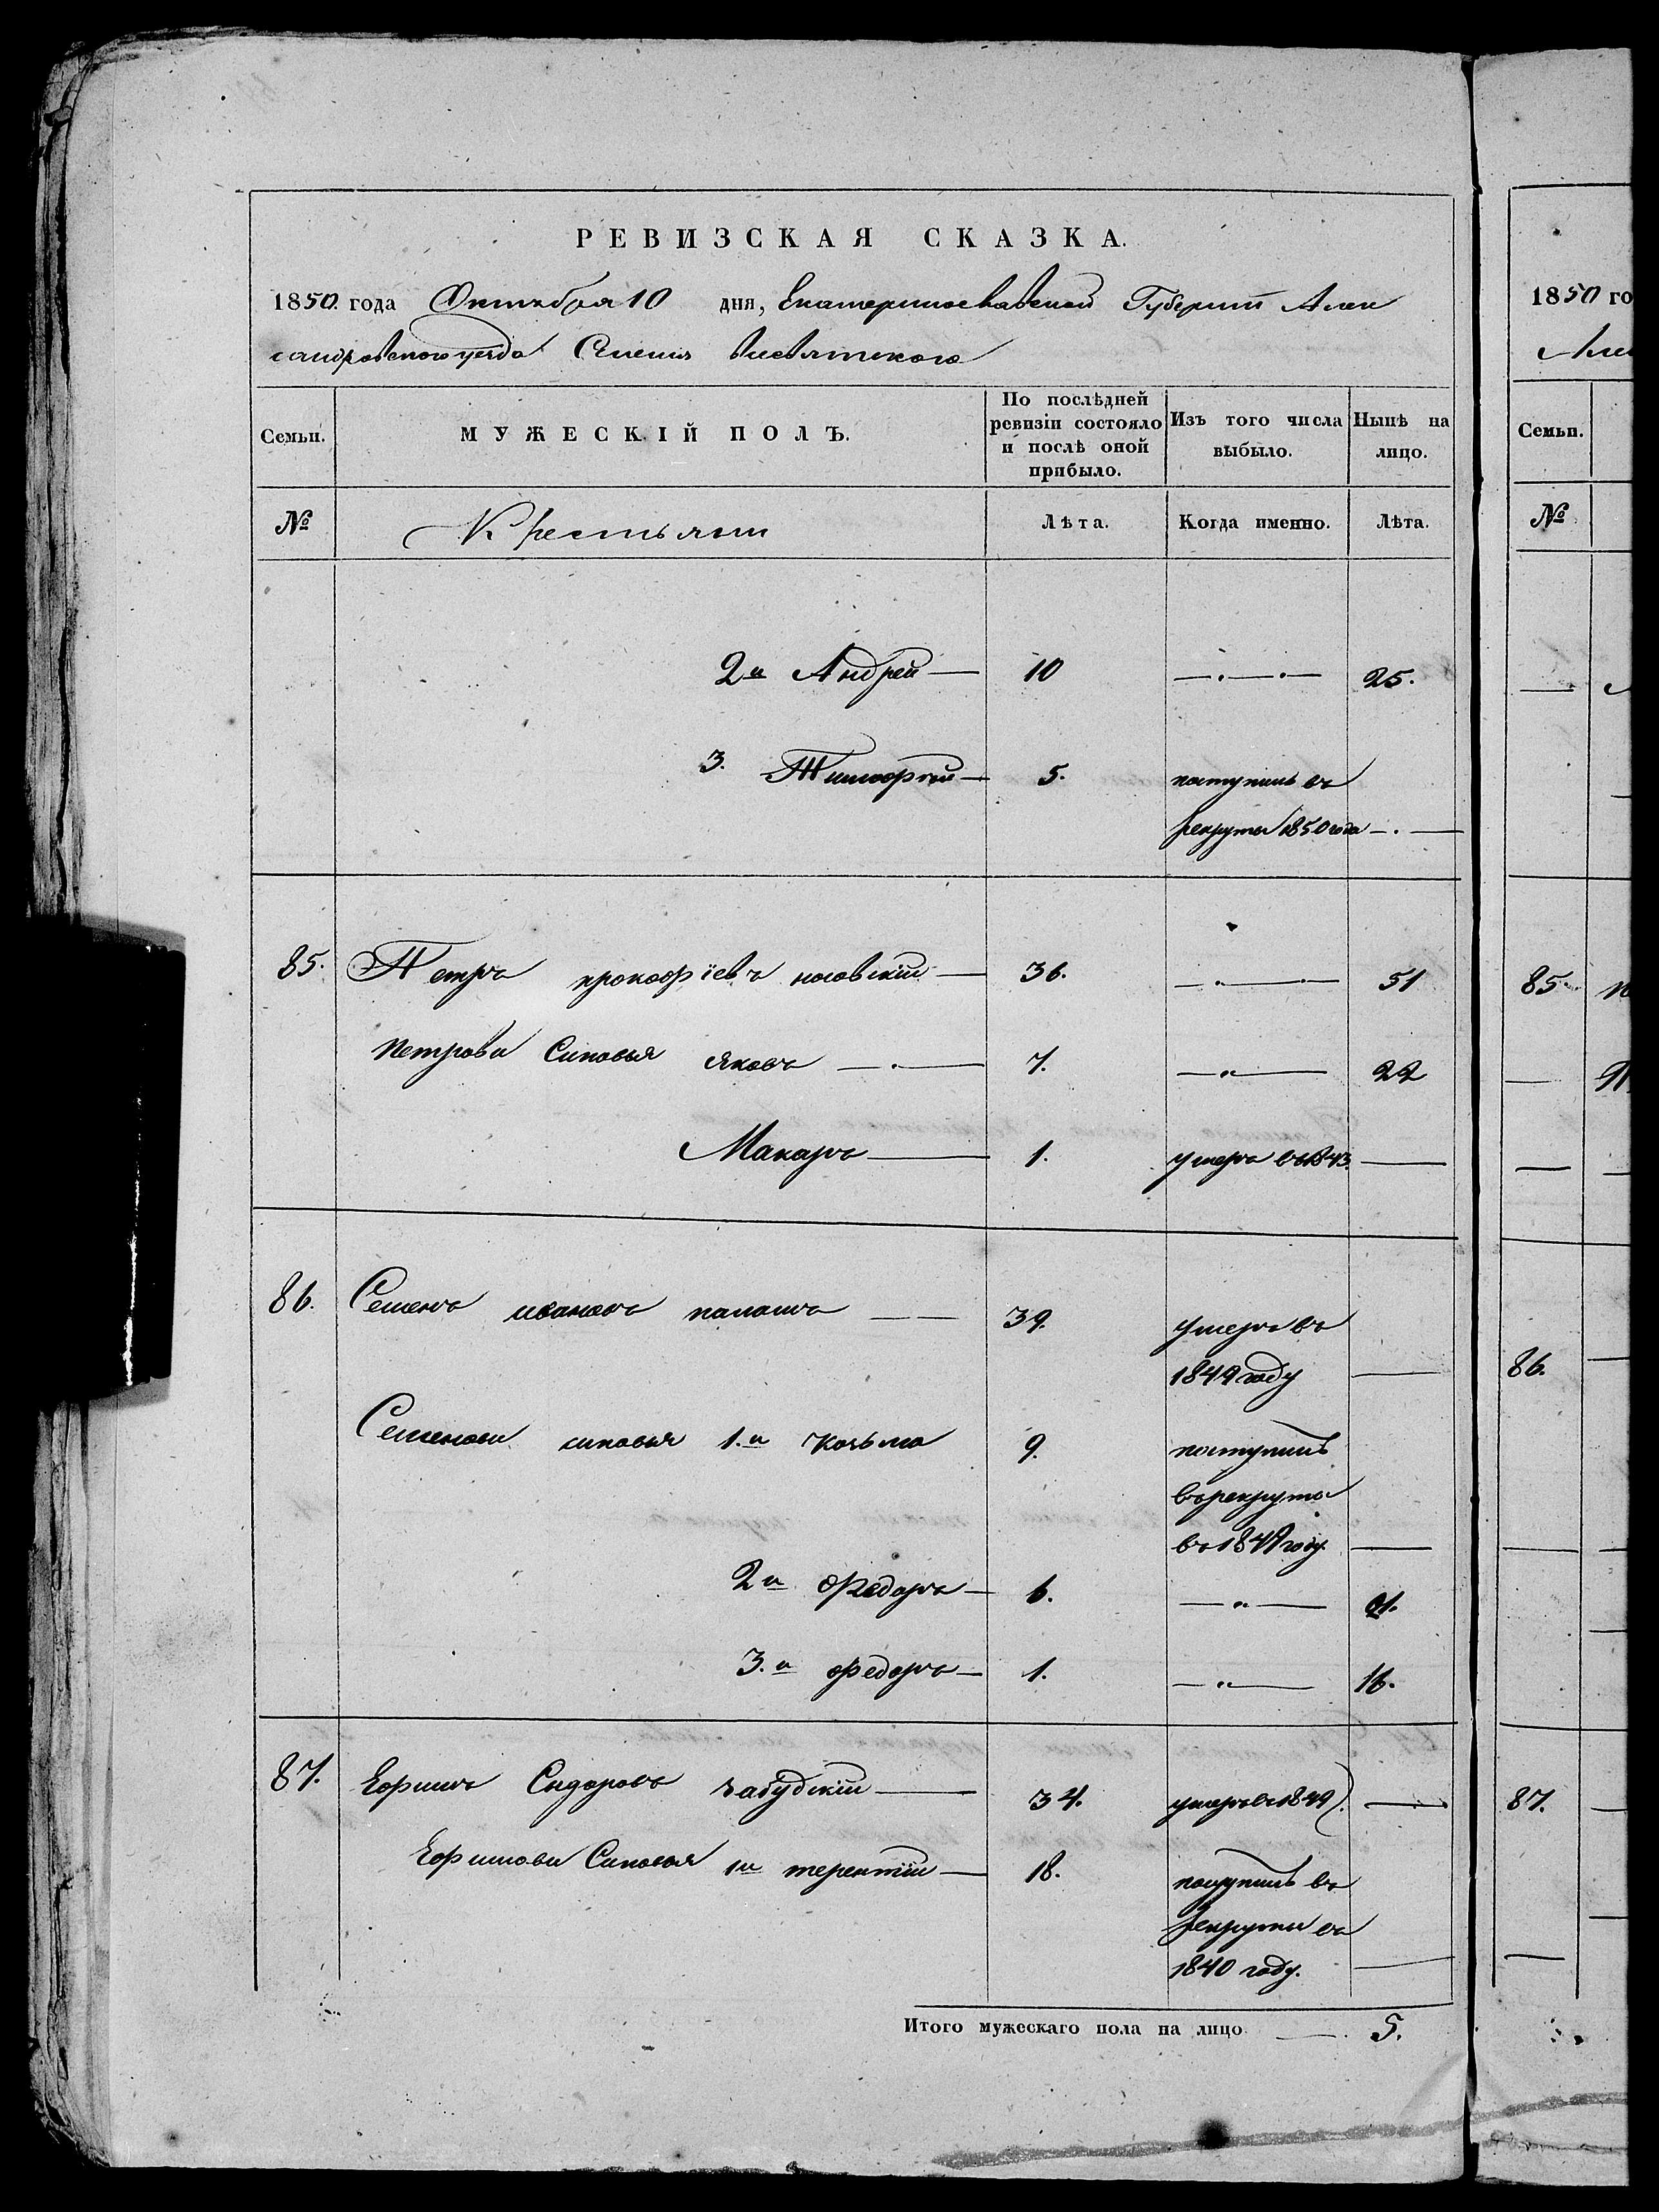 РЕВИЗСКАЯ СКАЗКА.
1850 года Октября 10 дня, Екатеринославской Губернии Алек
сандровского уезда Селения
Семьи. МУЖЕСКІЙ ПОЛЪ. По послѣдней ревизіи состояло и послѣ оной прибыло. Изъ того числа выбыло. Нынѣ на лицо.
№ Крестьяни Лѣта. Когда именно. Лѣта.
2й Андрей — 10 —·—·— 25.
3. Тимофей — 5. поступилъ въ
рекруты 1850 года —·—
85. Петръ прокофіевъ носовскій — 36. —·—·— 51
Петрови Синовья Яковъ —·— 7. —"— 22
Макаръ — 1. умеръ въ 1843. —
86. Семенъ ивановъ — — 39. умеръ въ
1849 году —
Семенови синовья 1.й козьма 9. поступилъ
въ рекрута
въ 1849 году. —
2й Федоръ — 6. —"— 21.
3.й федоръ — 1. —"— 16.
87. Ефимъ Сидоровъ забудскій — 34. умеръ въ 1849). —
Ефимови Синовья 1й терентій — 18. поступилъ въ
рекруты въ
1840 году. —
Итого мужескаго пола на лицо — 5.
1850 го
Але
Семьи.
№
85
86.
87.